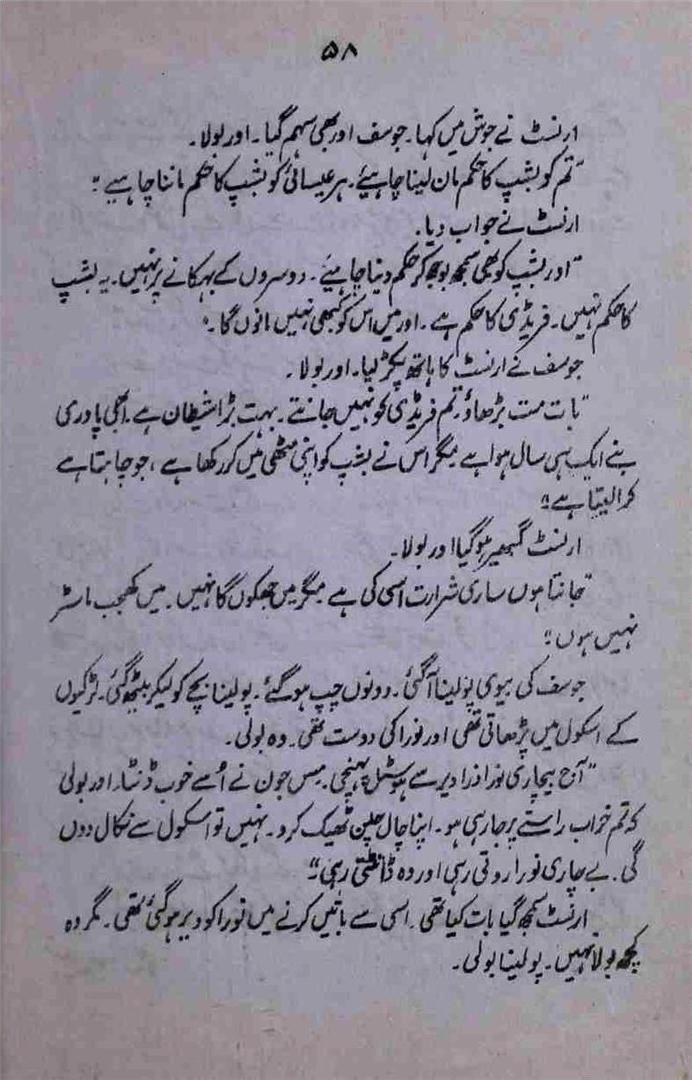 ۵۸
ارنسٹ نے جوش میں کہا۔ جوسف اور بھی سہم گیا۔ اور بولا۔
"تم کو بشپ کا حکم مان لینا چاہیئے۔ ہر عیسائی کو بشپ کا حکم ماننا چاہیے"
ارنسٹ نے جواب دیا۔
"اور بشپ کو بھی سمجھ بوجھ کر حکم دینا چاہیئے۔ دوسروں کے بہکانے پر نہیں۔ یہ بشپ
کا حکم نہیں۔ فریڈی کا حکم ہے۔ اور میں اس کو کبھی نہیں مانوں گا۔"
جوسف نے ارنسٹ کا ہاتھ پکڑ لیا۔ اور بولا۔
"بات مت بڑھاؤ۔ تم فریڈی کو نہیں جانتے۔ بہت بڑا شیطان ہے۔ ابھی پادری
بنے ایک ہی سال ہوا ہے مگر اس نے بشپ کو اپنی مٹھی میں کر رکھا ہے، جو چاہتا ہے
کرالیتا ہے"
ارنسٹ گمبھیر ہو گیا اور بولا۔
"جانتا ہوں ساری شرارت اسی کی ہے مگر میں جھکوں گا نہیں۔ میں ماسٹر
نہیں ہوں"
جوسف کی بیوی پولینا آ گئی۔ دونوں چپ ہو گئے۔ پولینا بچے کو لیکر بیٹھ گئی۔ لڑکیوں
کے اسکول میں پڑھاتی تھی اور نورا کی دوست تھی۔ وہ بولی۔
"آج بیچاری نورا ذرا دیر سے ہوسٹل پہنچی۔ مس جون نے اُسے خوب ڈانٹا۔ اور بولی
کہ تم خراب راستے پر جا رہی ہو۔ اپنا چال چلن ٹھیک کرو۔ نہیں تو اسکول سے نکال دوں
گی۔ بے چاری نورا روتی رہی اور وہ ڈانٹتی رہی"
ارنسٹ سمجھ گیا بات کیا تھی۔ اسی سے باتیں کرنے میں نورا کو دیر ہو گئی تھی۔ مگر وہ
کچھ بولا نہیں۔ پولینا بولی۔